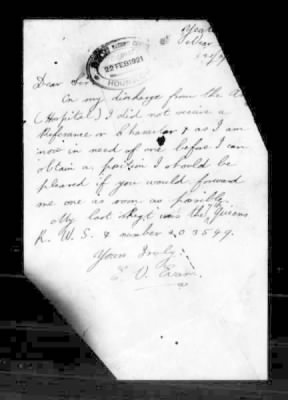 22 FEB 1921
HOUNSLOW
Dear Sir
On my discharge from the
(Hospital) I did not receive a
Reference or Character & as I am
now in need of one before I can
obtain a position I should be
pleased if you would forward
me one as soon as possible.
My last Regt was the Queens
R. W. S. & number 203599.
Yours truly.
E. O. Evans.